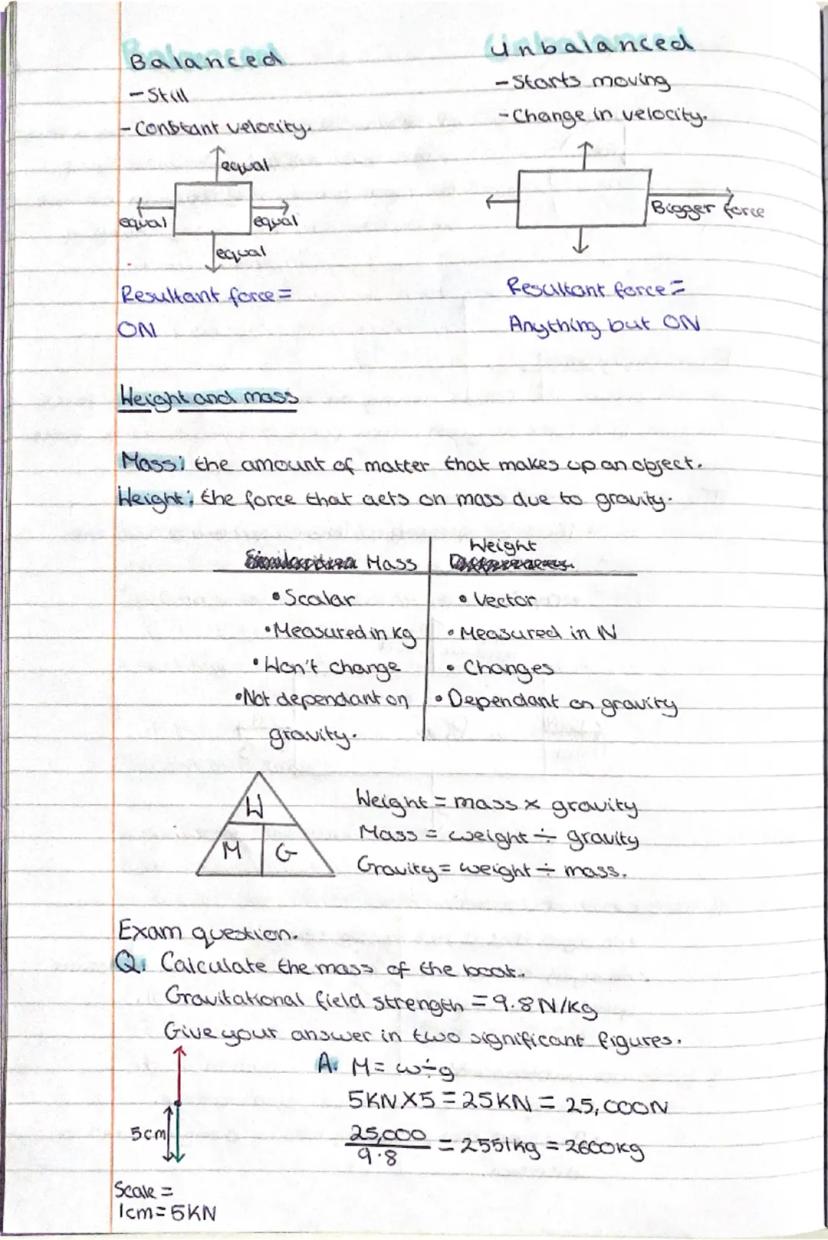 Balanced
- Still
- Constant velocity.
equal
equal
equal
equal
Resultant force =
0N
Unbalanced
- Starts moving
- Change in velocity.
Bigger force
Resultant force =
Anything but 0N
Weight and mass
Mass: the amount of matter that makes up an object.
Weight: the force that acts on mass due to gravity.
Mass
• Scalar
• Measured in kg
• Won't change
• Not dependant on
gravity.
Weight
• Vector
• Measured in N
• Changes
• Dependant on gravity
W
M G
Weight = mass × gravity
Mass = weight ÷ gravity
Gravity = weight ÷ mass.
Exam question.
Q: Calculate the mass of the boat.
Gravitational field strength = 9.8 N/kg
Give your answer in two significant figures.
5cm
Scale =
1cm = 5KN
A: M = w÷g
5KN X 5 = 25KN = 25,000N
25,000
9.8
= 2551kg = 2600kg